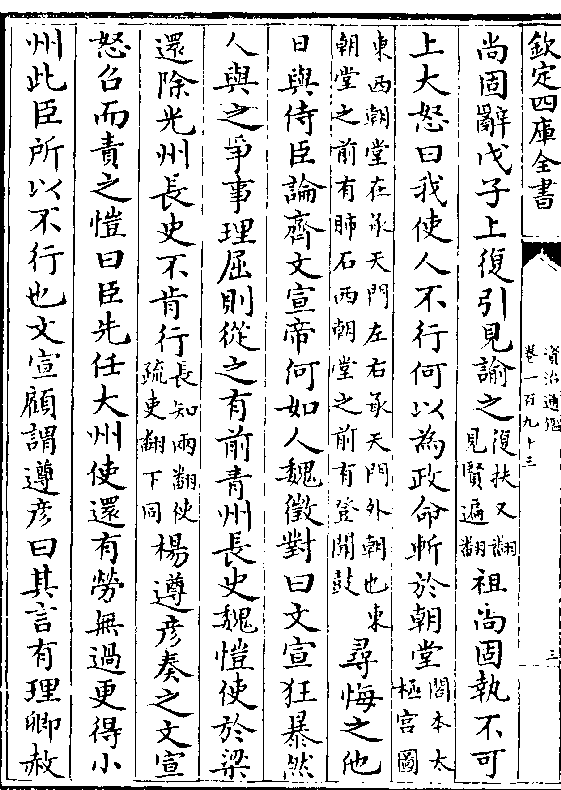 欽定四庫全書
資治通鑑
卷一百九十三
三
尚固辭戊子上復引見諭之復扶又翻見賢遍翻祖尚固執不可
上大怒曰我使人不行何以為政命斬於朝堂閣本太極宫圖
東西朝堂在承天門左右承天門外朝也東朝堂之前有肺石西朝堂之前有登聞鼓尋悔之他
日與侍臣論齊文宣帝何如人魏徵對曰文宣狂暴然
人與之爭事理屈則從之有前青州長史魏愷使於梁
還除光州長史不肯行長知兩翻使疏吏翻下同楊遵彥奏之文宣
怒召而責之愷曰臣先任大州使還有勞無過更得小
州此臣所以不行也文宣顧謂遵彥曰其言有理卿赦